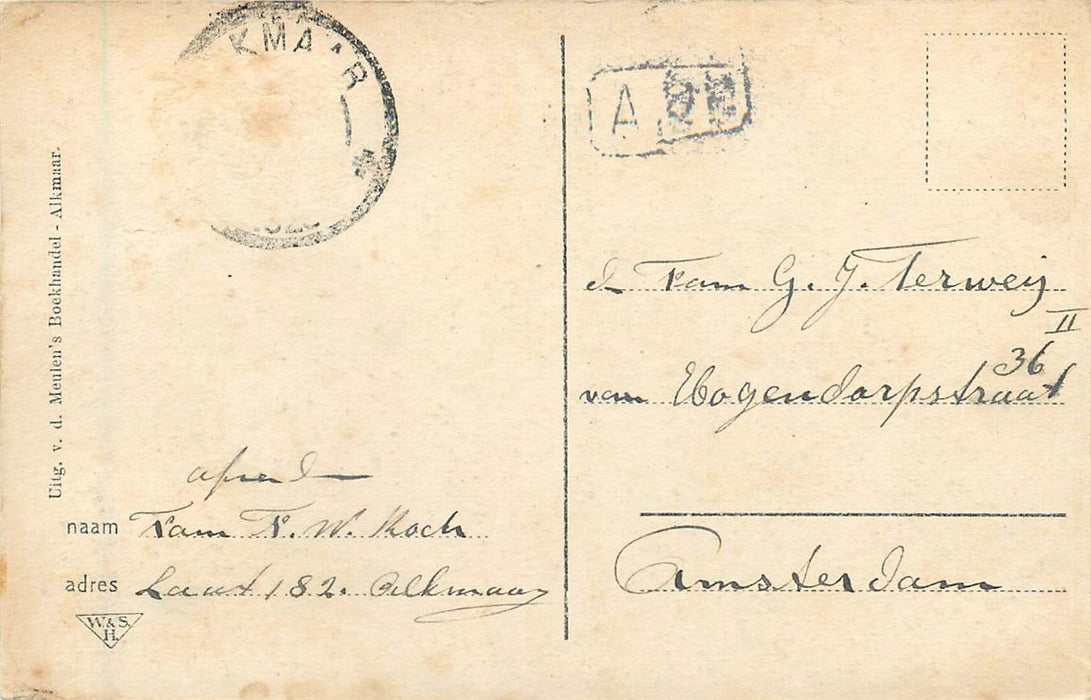 KMAAR
Uitg. v. d. Meulen's Boekhandel - Alkmaar.
naam Fam F. W. Koch
adres Laat 182. Alkmaar
W. & S.
H.
A
Fam G. J. Terweij
II
36
van Hogendorpstraat
Amsterdam